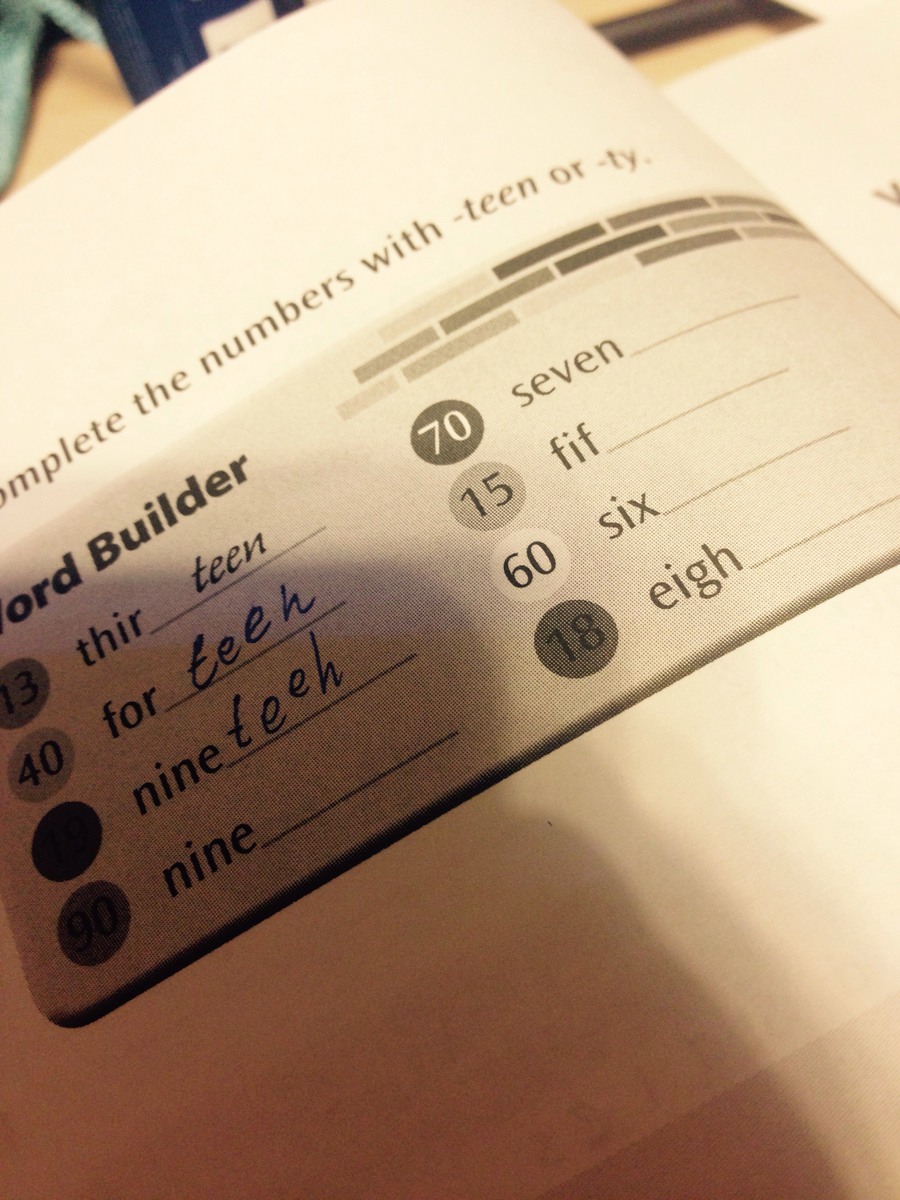 omplete the numbers with -teen or -ty.
Word Builder
13 thir teen
40 for teen
19 nine teen
90 nine
70 seven
15 fif
60 six
18 eigh